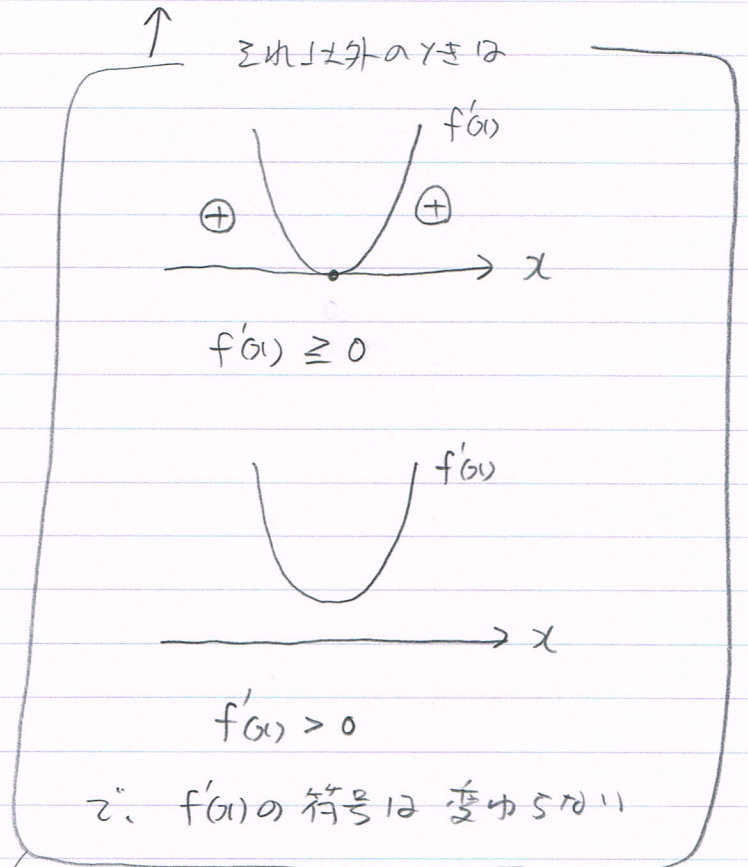 それ以外のときは
f'(x)
⊕ ⊕
x
f'(x) ≧ 0
f'(x)
x
f'(x) > 0
で、f'(x)の符号は変わらない